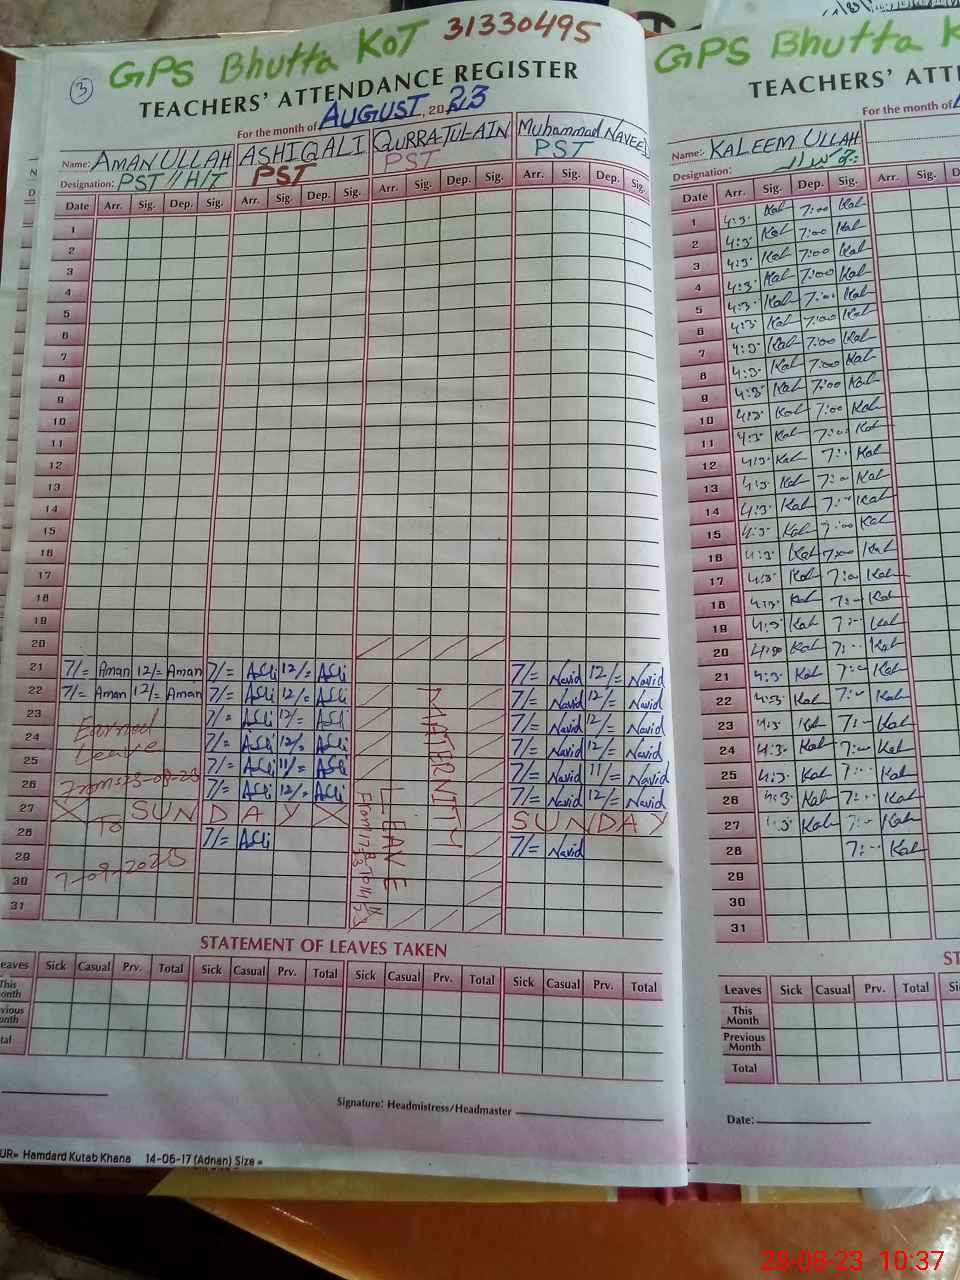 GPS Bhutta KOT 31330495
3
TEACHERS' ATTENDANCE REGISTER
For the month of AUGUST, 2023
Name: AMAN ULLAH ASHIQ ALI QURRA-TUL-AIN Muhammad NAVEED
Designation: PST // H/T PST PST PST
Date Arr. Sig. Dep. Sig. Arr. Sig. Dep. Sig. Arr. Sig. Dep. Sig. Arr. Sig. Dep. Sig.
1
2
3
4
5
6
7
8
9
10
11
12
13
14
15
16
17
18
19
20
21 7/= Aman 12/= Aman 7/= ASLi 12/= ASLi 7/= Navid 12/= Navid
22 7/= Aman 12/= Aman 7/= ASLi 12/= ASLi 7/= Navid 12/= Navid
23 7/= ASLi 12/= ASLi 7/= Navid 12/= Navid
24 7/= ASLi 12/= ASLi 7/= Navid 12/= Navid
25 7/= ASLi 11/= ASLi 7/= Navid 11/= Navid
26 7/= ASLi 12/= ASLi 7/= Navid 12/= Navid
27 X SUNDAY X SUNDAY
28 7/= ASLi 7/= Navid
29
30
31
Earned
Leave
From 23-08-23
To
7-09-2023
MATERNITY
LEAVE
STATEMENT OF LEAVES TAKEN
eaves Sick Casual Prv. Total Sick Casual Prv. Total Sick Casual Prv. Total Sick Casual Prv. Total
This
onth
vious
onth
tal
Signature: Headmistress/Headmaster
UR= Hamdard Kutab Khana 14-06-17 (Adnan) Size =
GPS Bhutta K
TEACHERS' ATT
For the month of
Name: KALEEM ULLAH
Designation:
Date Arr. Sig. Dep. Sig. Arr. Sig. D
1 4:3 Kal 7:00 Kal
2 4:3 Kal 7:00 Kal
3 4:3 Kal 7:00 Kal
4 4:3 Kal 7:00 Kal
5 4:3 Kal 7:00 Kal
6 4:3 Kal 7:00 Kal
7 4:3 Kal 7:00 Kal
8 4:3 Kal 7:00 Kal
9 4:3 Kal 7:00 Kal
10 4:3 Kal 7:00 Kal
11 4:3 Kal 7:00 Kal
12 4:3 Kal 7:-- Kal
13 4:3 Kal 7:-- Kal
14 4:3 Kal 7:-- Kal
15 4:3 Kal 7:00 Kal
16 4:3 Kal 7:00 Kal
17 4:3 Kal 7:-- Kal
18 4:3 Kal 7:-- Kal
19 4:3 Kal 7:-- Kal
20 4:3 Kal 7:-- Kal
21 4:3 Kal 7:-- Kal
22 4:3 Kal 7:-- Kal
23 4:3 Kal 7:-- Kal
24 4:3 Kal 7:-- Kal
25 4:3 Kal 7:-- Kal
26 4:3 Kal 7:-- Kal
27 4:3 Kal 7:-- Kal
28 7:-- Kal
29
30
31
ST
Leaves Sick Casual Prv. Total Si
This
Month
Previous
Month
Total
Date:
28-08-23 10:37